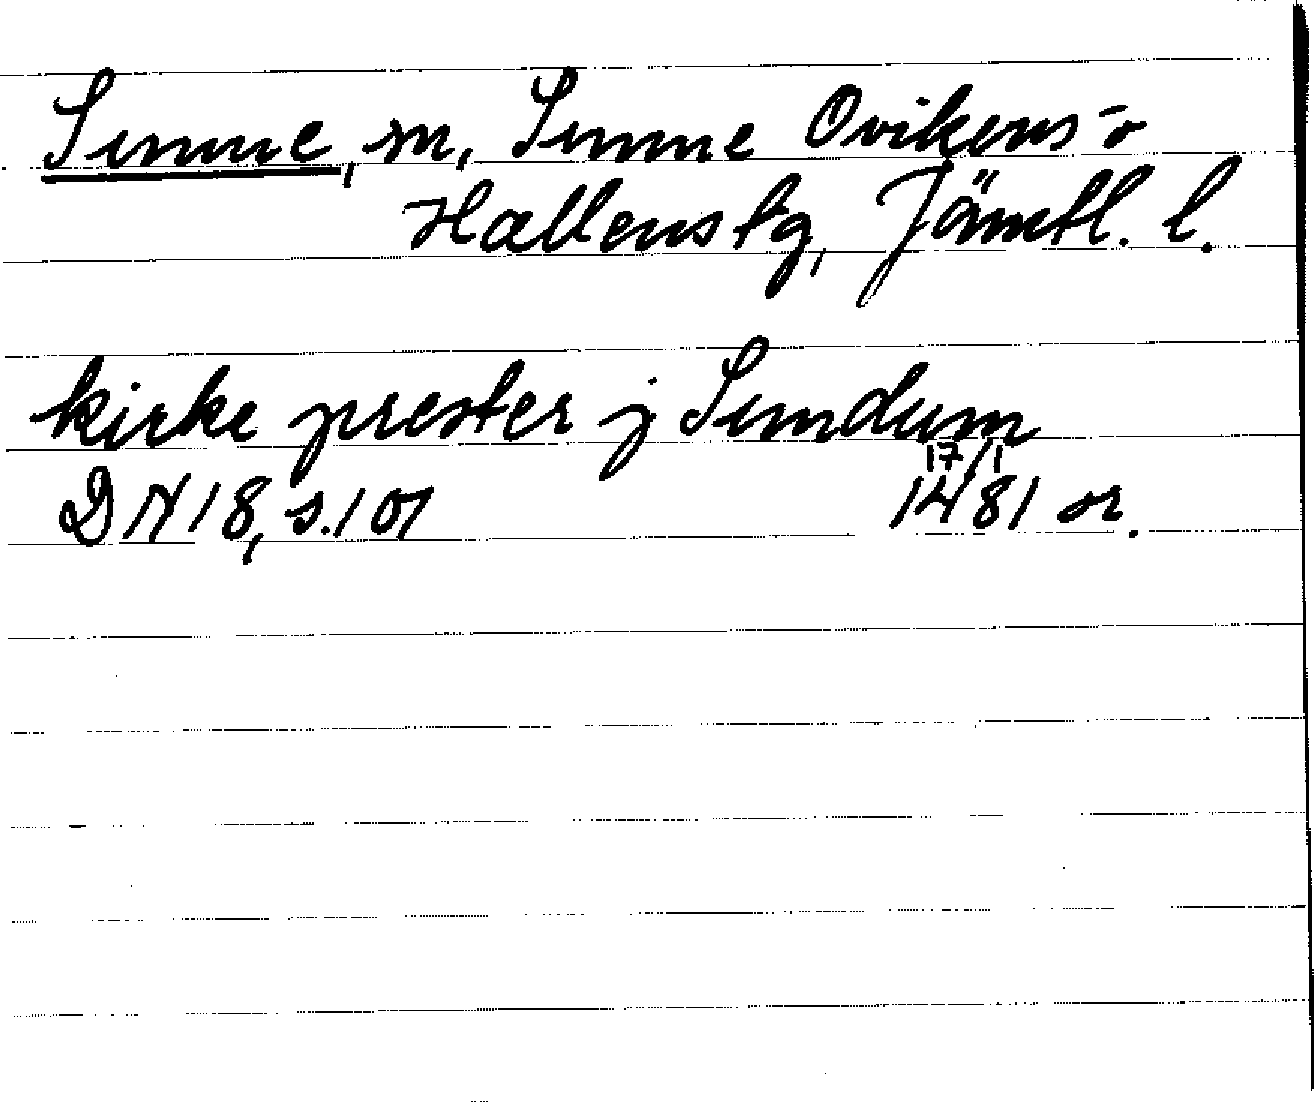 Sunne, sn, Sunne Ovikens o
Hallens tg, Jämtl. l.
kirke prester j Sundum
17/1
DN 18, s. 101 1481 or.